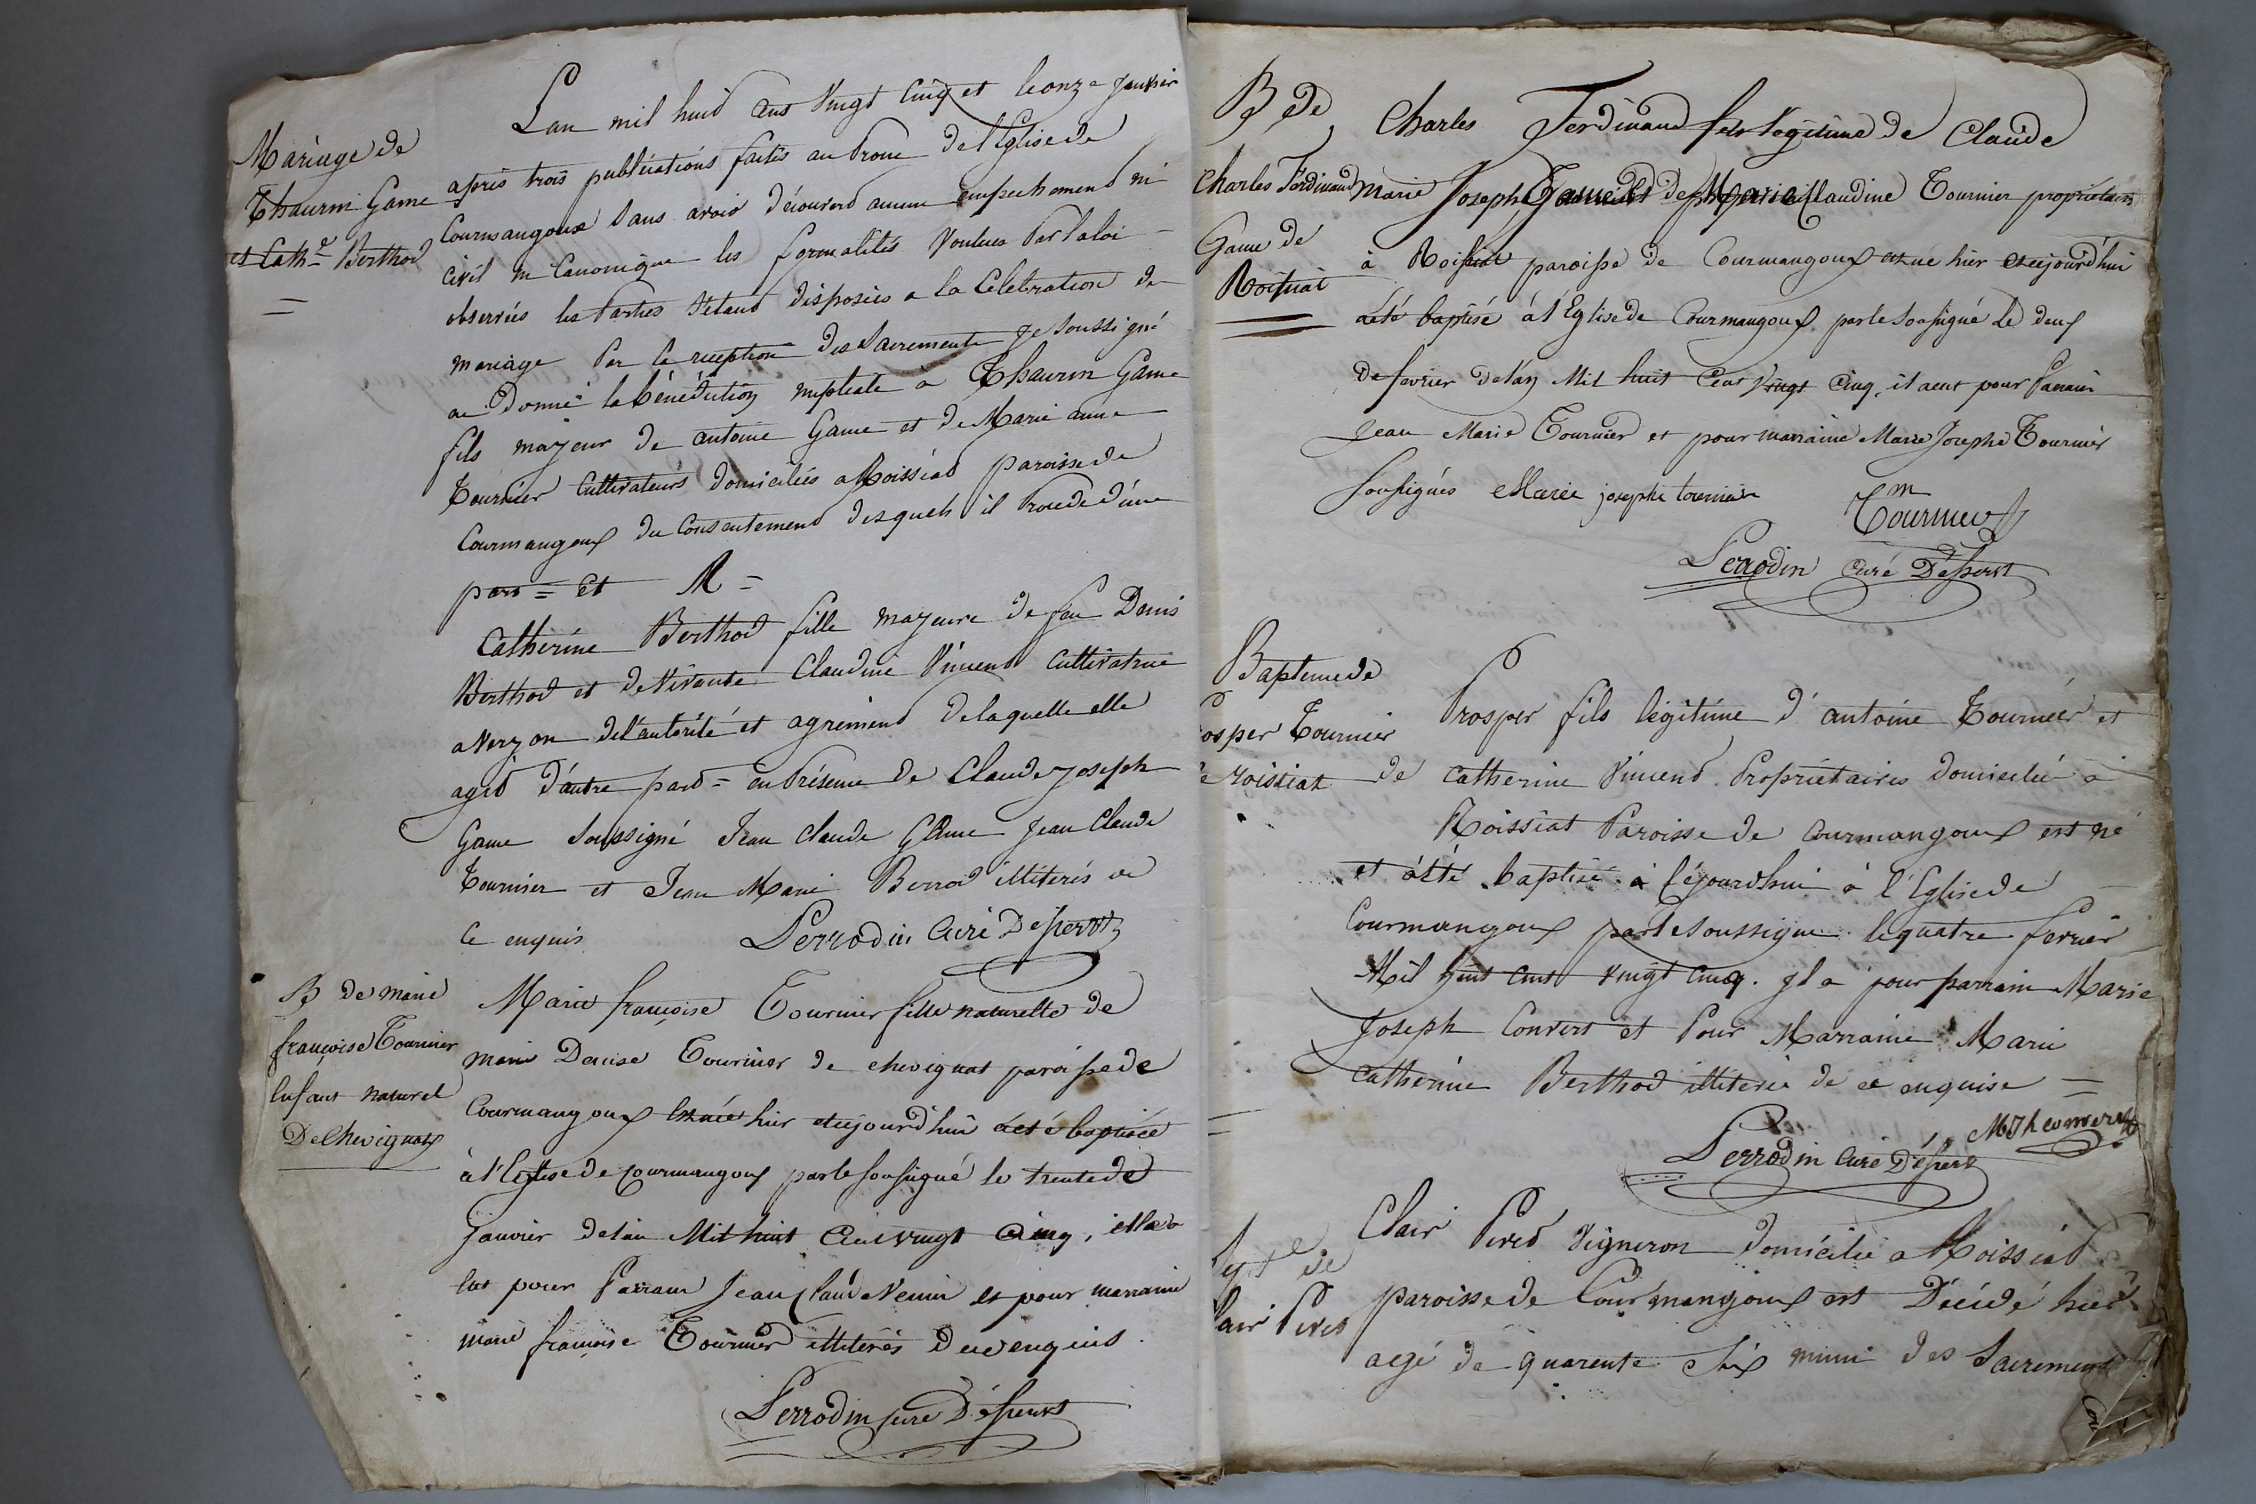 Mariage de
Thaurin Game
et Cath.e Berthod
Lan mil huid cens vingt cinq et le onze janvier
après trois publications faites au Prone de l'Eglise de
Courmangoux sans avoir découverd aucun empechemend ni
civil ni Canonique les formalités voulues Par la loi
observées les Parties s'etand disposées a la Célébration du
mariage Par la reception des Sacrements je soussigné
ai donné la bénédiction nuptiale à Thaurin Game
fils majeur de antoine Game et de Marie anne
Tournier Cultivateurs domiciliés a Roissiad paroisse de
Courmangoux du Consentemend desquels il Procede d'une
pard = Et R =
Catherine Berthod fille majeure de feu Denis
Berthod et de vivante Claudine Vincend Cultivatrice
a Verjon de l'autorité et agrémend de laquelle elle
agid d'autre pard = en Présence de Claude joseph
Game soussigné Jean claude Game Jean Claude
Tournier et Jean Marie Berrod illiterés de
Ce enquis Perrodin Curé Desservt
B de marie
françoise Tournier
enfant naturel
De Chevignat
Marie françoise Tournier fille naturelle de
marie Denise Tournier de chevignat paroisse de
Courmangoux est née hier et aujourd'hui a été baptisée
à l'Eglise de Courmangoux par le soussigné le trente de
janvier de l'an Mil huit Cent vingt Cinq, elle a
eut pour Parrain Jean Claude Venin et pour marraine
marie françoise Tournier illiterés de ce enquis.
Perrodin curé Desservt
B de
Charles Ferdinand
Game de
Roissiat
Charles Ferdinand fils légitime de Claude
Marie Joseph Game et de Marie Claudine Tournier propriétaires
à Roissiat paroisse de Courmangoux est né hier et aujourd'hui
a été baptisé à l'Eglise de Courmangoux par le soussigné le deux
de fevrier de l'an Mil huit Cent vingt Cinq, il a eut pour Parrain
Jean Marie Tournier et pour marraine Marie Josephe Tournier
soussignés Marie josephe tournier
Tournier
Perrodin curé Desservt
Bapteme de
osper Tournier
de roissiat
Prosper fils légitime d'antoine Tournier et
de Catherine Vincend Propriétaires domicilié à
Roissiat Paroisse de Courmangoux est né
et a été baptisé à léjourdhui à l'Eglise de
Courmangoux par le soussigné le quatre fevrier
Mil huit cent vingt cinq. Il a pour parrain Marie
Joseph Convert et Pour Marraine Marie
Catherine Berthod illiterée de ce enquise =
M Jh convert
Perrodin curé Desservt
lair Pired
Clair Pired vigneron domicilié a Roissiad
paroisse de Courmangoux est Décédé hier
agé de quarente six muni des Sacrements